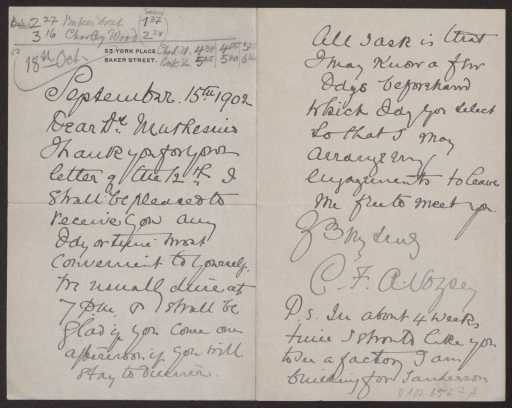 2 27 Baker Street 1 27
3 16 Chorley Wood 2
23. YORK PLACE,
BAKER STREET.
18th Oct.
September. 15th 1902
Dear Dr Muthesius
Thank you for your
letter of the 12th. I
shall be pleased to
receive you any
Day or time most
convenient to yourself.
We usually dine at
7 p.m. & I shall be
glad if you come one
afternoon if you will
stay to dinner.
All I ask is that
I may know a few
Days beforehand
which Day you select
so that I may
arrange my
engagements to leave
me free to meet you.
Yours truly
C. F. A. Voysey
P.s. In about 4 weeks
time I should like you
to see a factory I am
building for Sanderson